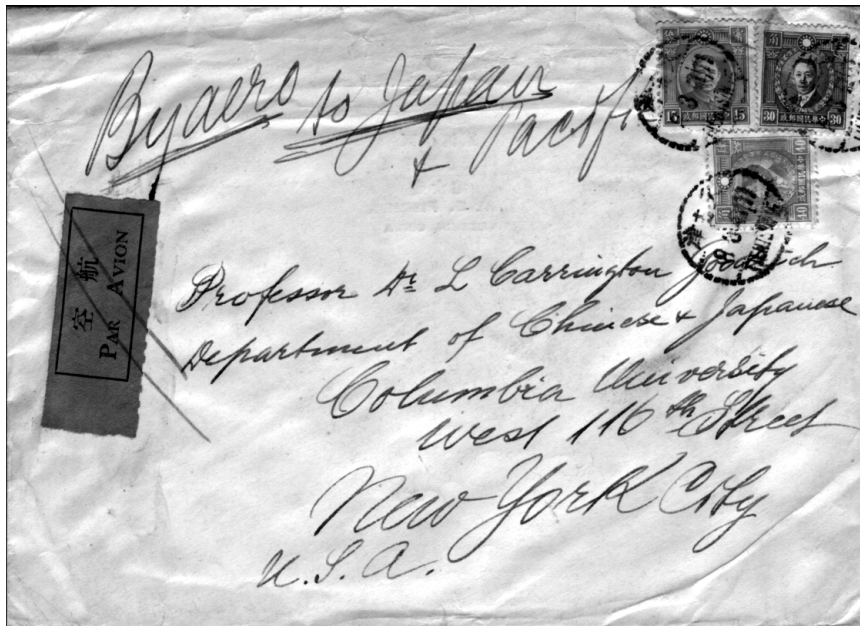 By aero to Japan
& Pacific
航空
PAR AVION
15 政郵國民華中 15
30 政郵國民華中 30
40
Professor Dr L Carrington Goodrich
Department of Chinese & Japanese
Columbia University
West 116th Street
New York City
U.S.A.